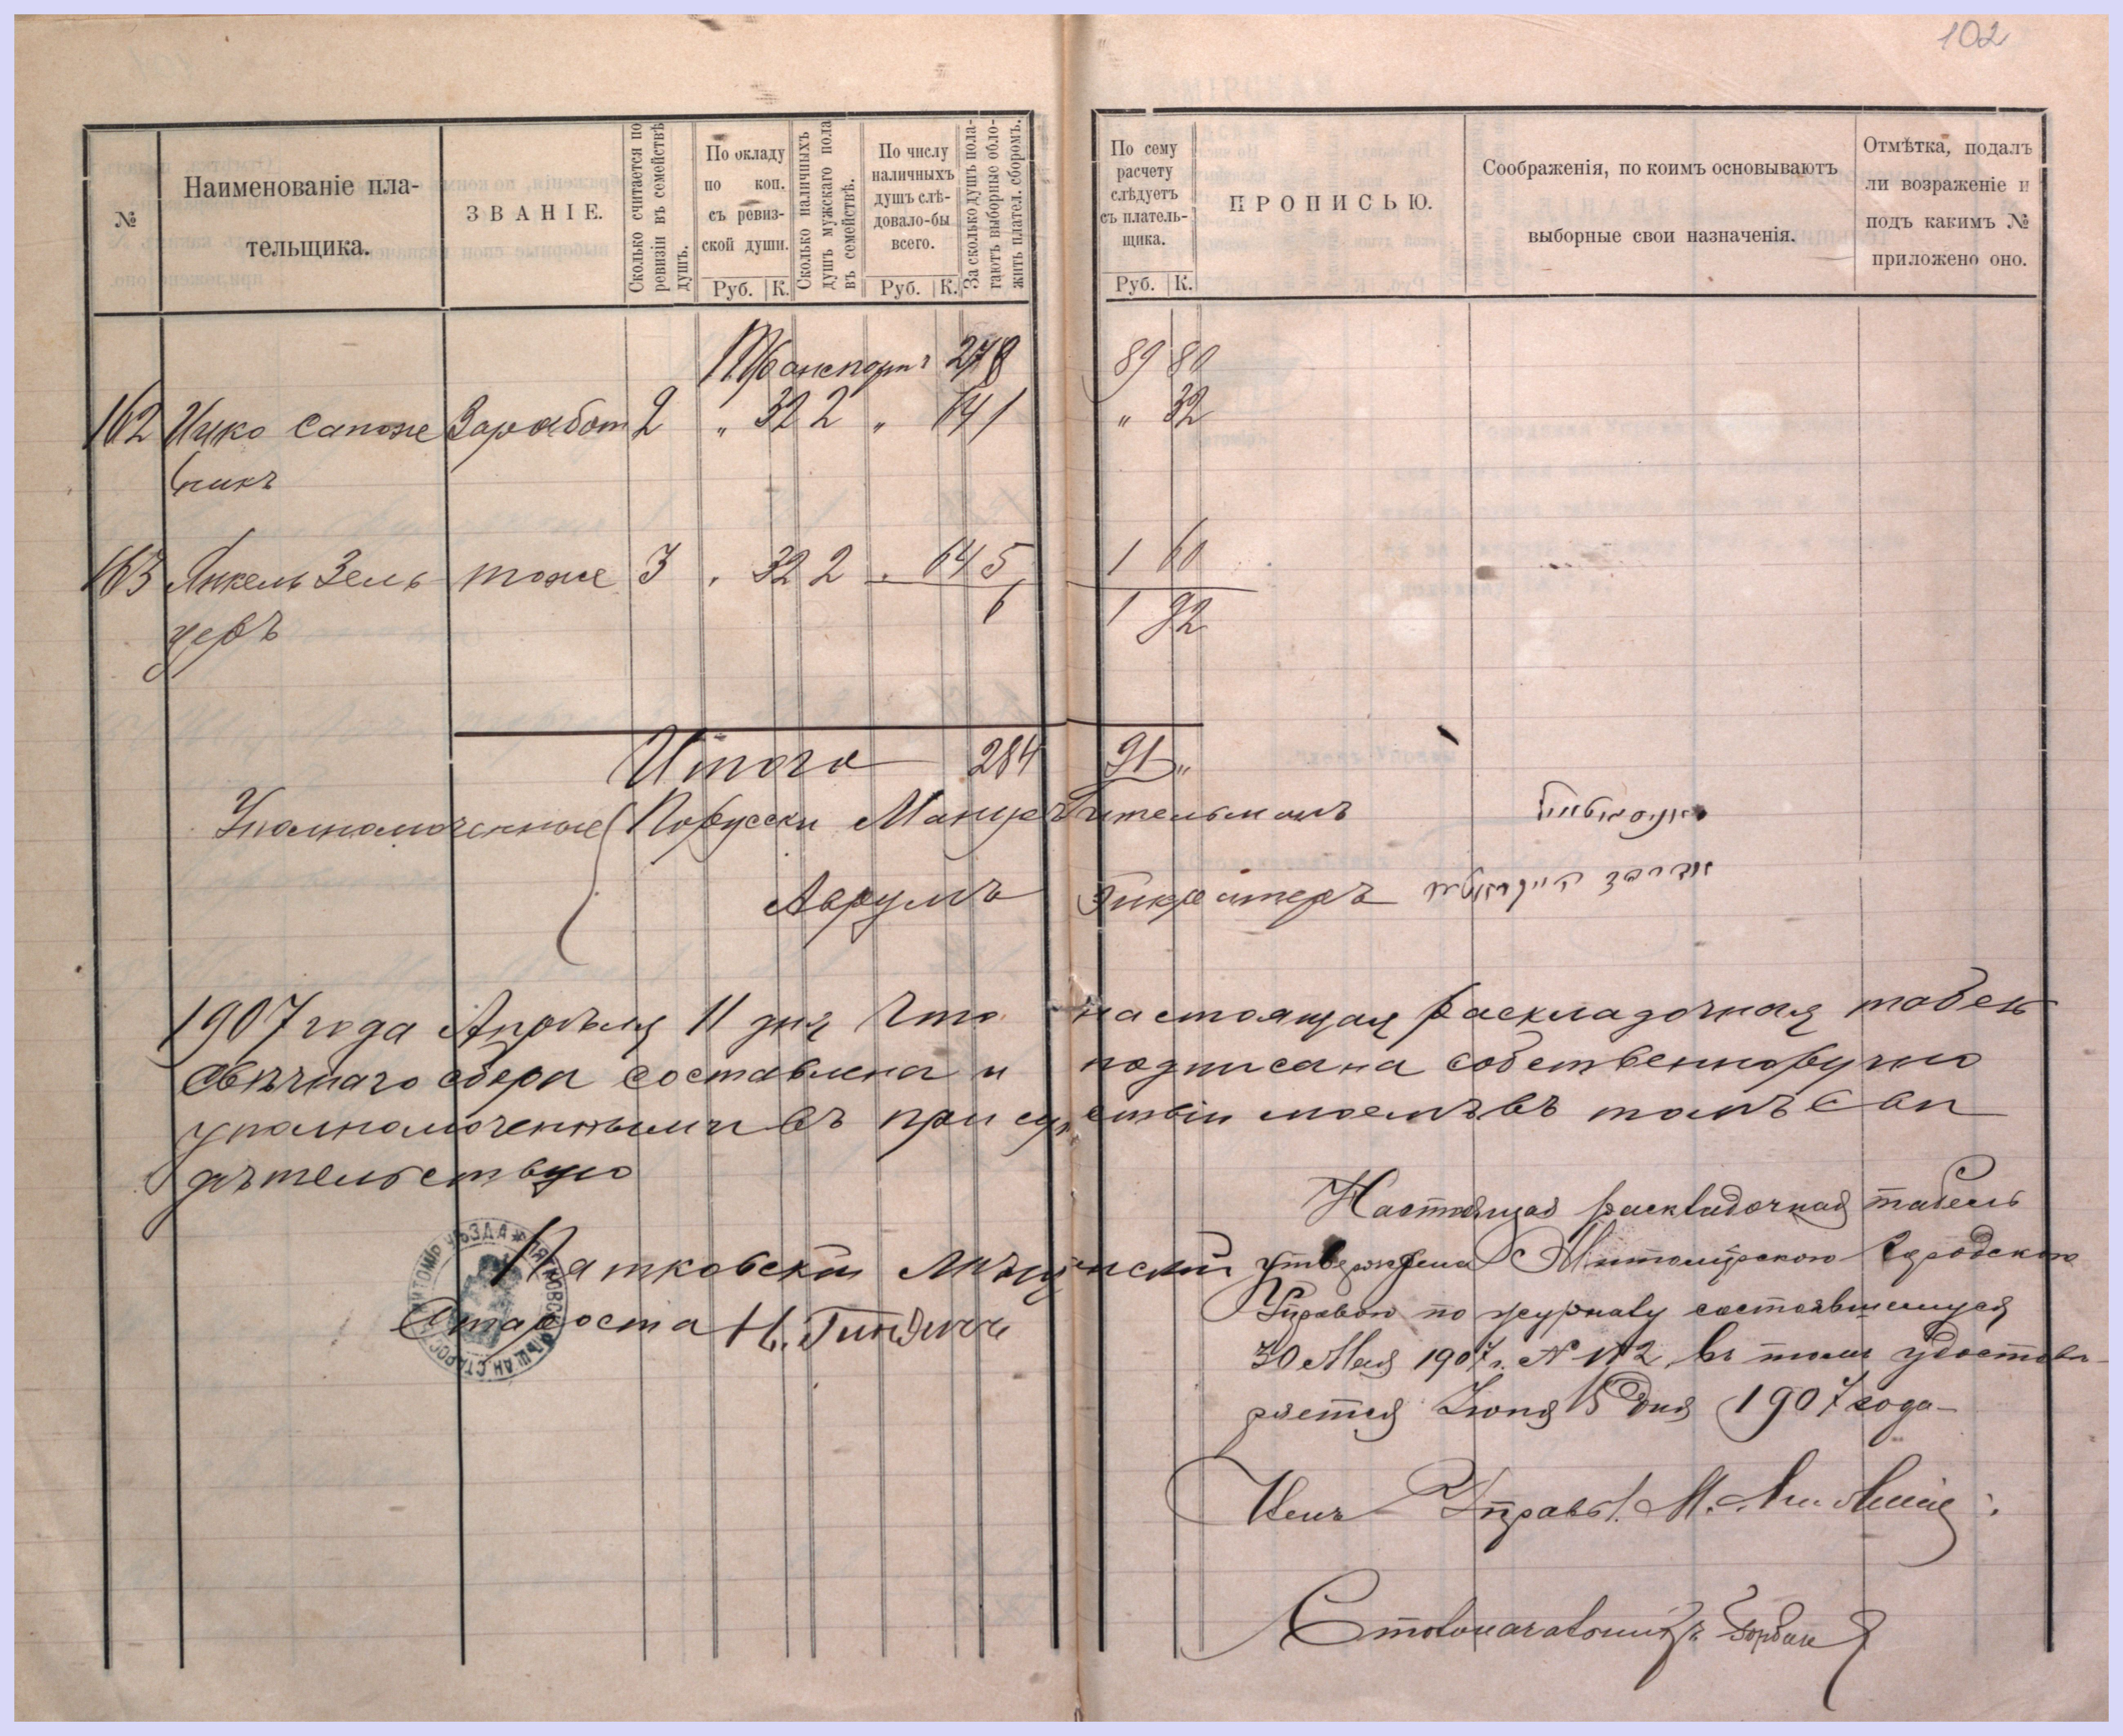 102
№
Наименованіе пла-
тельщика.
ЗВАНІЕ.
Сколько считается по
ревизіи въ семействѣ
душъ.
По окладу
по коп.
съ ревиз-
ской души.
Руб. К.
Сколько наличныхъ
душъ мужскаго пола
въ семействѣ.
По числу
наличныхъ
душъ слѣ-
довало-бы
всего.
Руб. К.
За сколько душъ пола-
гаютъ выборные обло-
жить плател. сборомъ.
По сему
расчету
слѣдуетъ
съ платель-
щика.
Руб. К.
ПРОПИСЬЮ.
Соображенія, по коимъ основываютъ
выборные свои назначенія.
Отмѣтка, подалъ
ли возраженіе и
подъ какимъ №
приложено оно.
Транспортъ 278 89 80
162 Ицко Сапож Заработ 2 " 32 2 " 64 1 " 32
никъ
163 Янкель Зель тоже 3 " 32 2 " 64 5 1 60
церъ 6 1 92
Итого 284 91 "
Уполномоченные Порусски
Аврумъ
1907 года Апрѣля 11 дня Что настоящая раскладочная табель
свѣчнаго сбора составлена и подписана собственноручно
уполномоченными въ присутствіи моемъ въ томъ сви
дѣтельствую
Пятковскій Мѣщанскій
Староста Н.
Настоящая раскладочная табель
утверждена Житомірскою Городскою
Управою по журналу состоявшемуся
30 Мая 1907 г. № 112, въ томъ удостовѣ-
ряется Іюня 15 дня 1907 года
Членъ Управы М.
Столоначальникъ